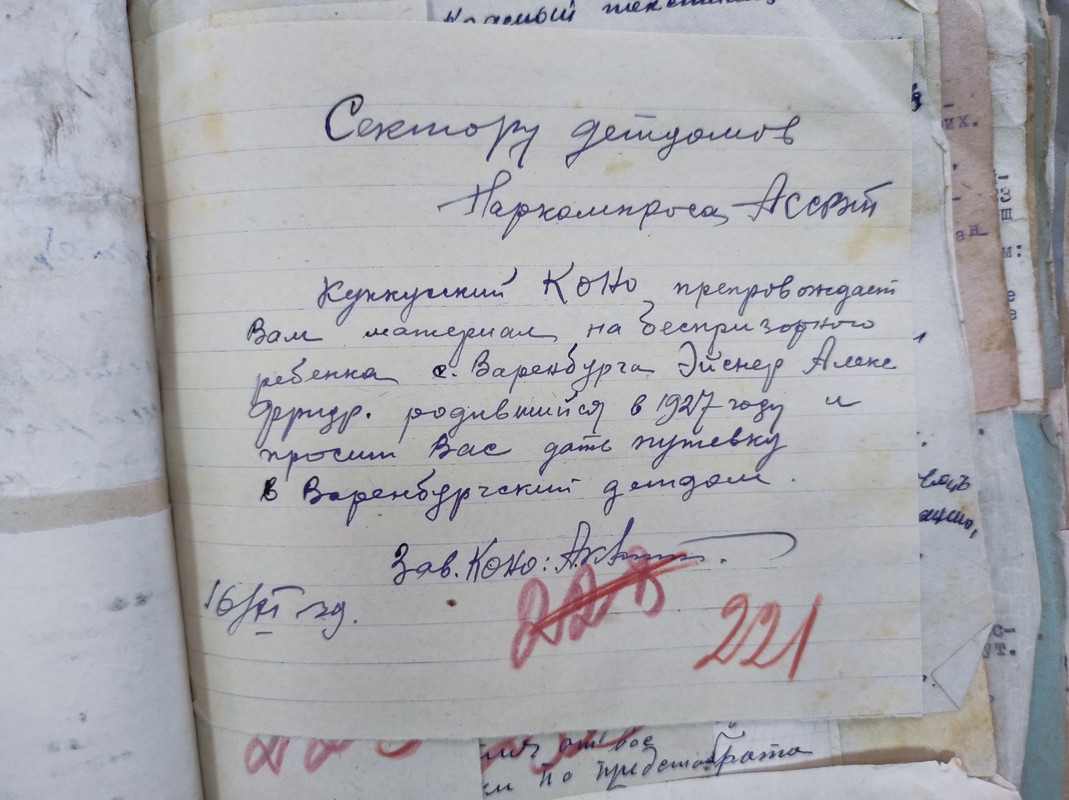 Красный
Сектору детдомов
Наркомпроса АССРНП
Куккусский КОНО препровождает
Вам материал на беспризорного
ребенка с. Варенбурга Эйснер Алекс
Фридр. родившийся в 1927 году и
просит Вас дать путевку
в Варенбургский детдом.
Зав. КОНО:
228
221
их.
от вас
по представ